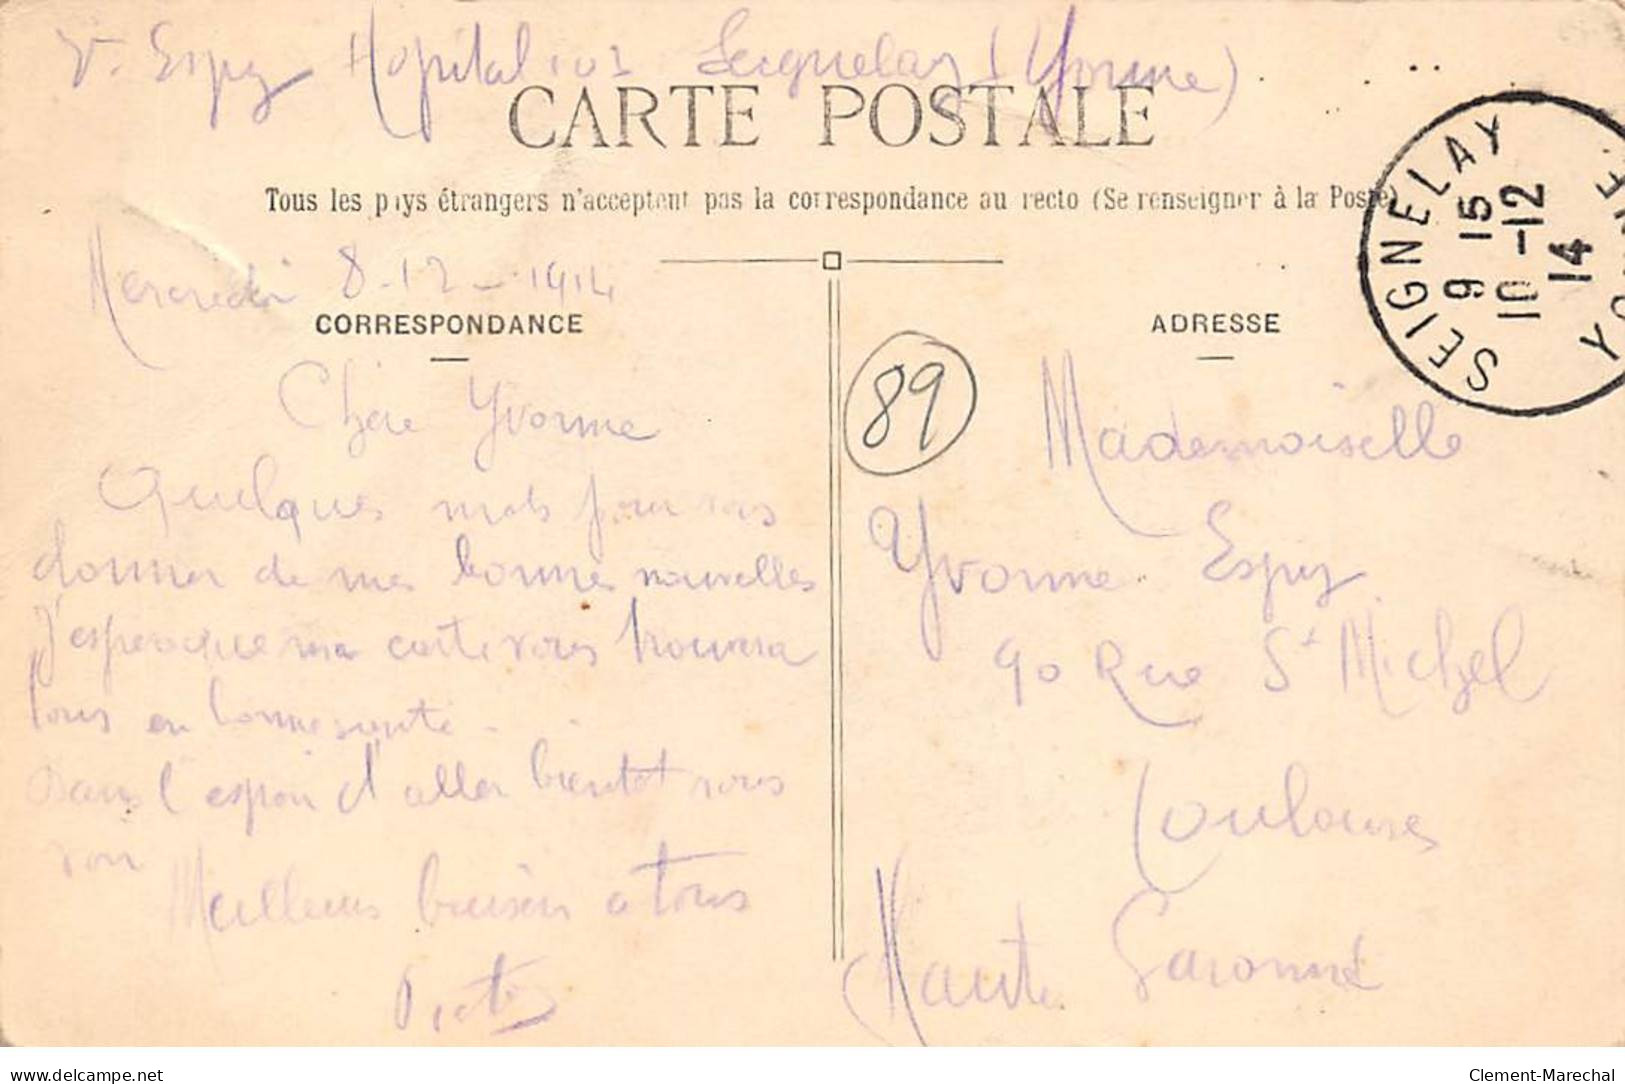 V. Espy Hôpital 101 Seignelay (Yonne)
CARTE POSTALE
Tous les pays étrangers n'acceptent pas la correspondance au recto (Se renseigner à la Poste)
SEIGNELAY
9 15
10-12
14
YONNE
Mercredi 8-12-1914
CORRESPONDANCE
Chère Yvonne
Quelques mots pour vous
donner de mes bonnes nouvelles
J'espère que ma carte vous trouvera
tous en bonne santé -
Dans l'espoir d'aller bientôt vous
voir
Meilleurs baisers a tous
89
ADRESSE
Mademoiselle
Yvonne Espy
90 Rue St Michel
Toulouse
Haute Garonne
www.delcampe.net
Clement-Marechal